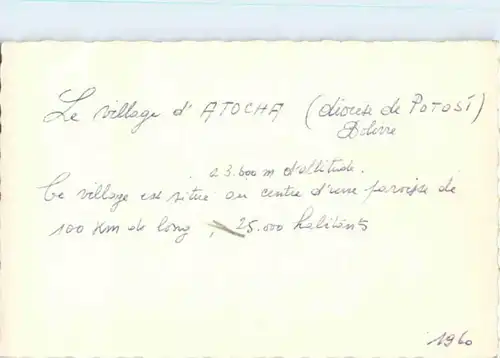 Le village d'ATOCHA (diocèse de POTOSÍ)
Bolivie
à 3.600 m d'altitude.
Ce village est situé au centre d'une paroisse de
100 Km de long, 25.000 habitants
1960